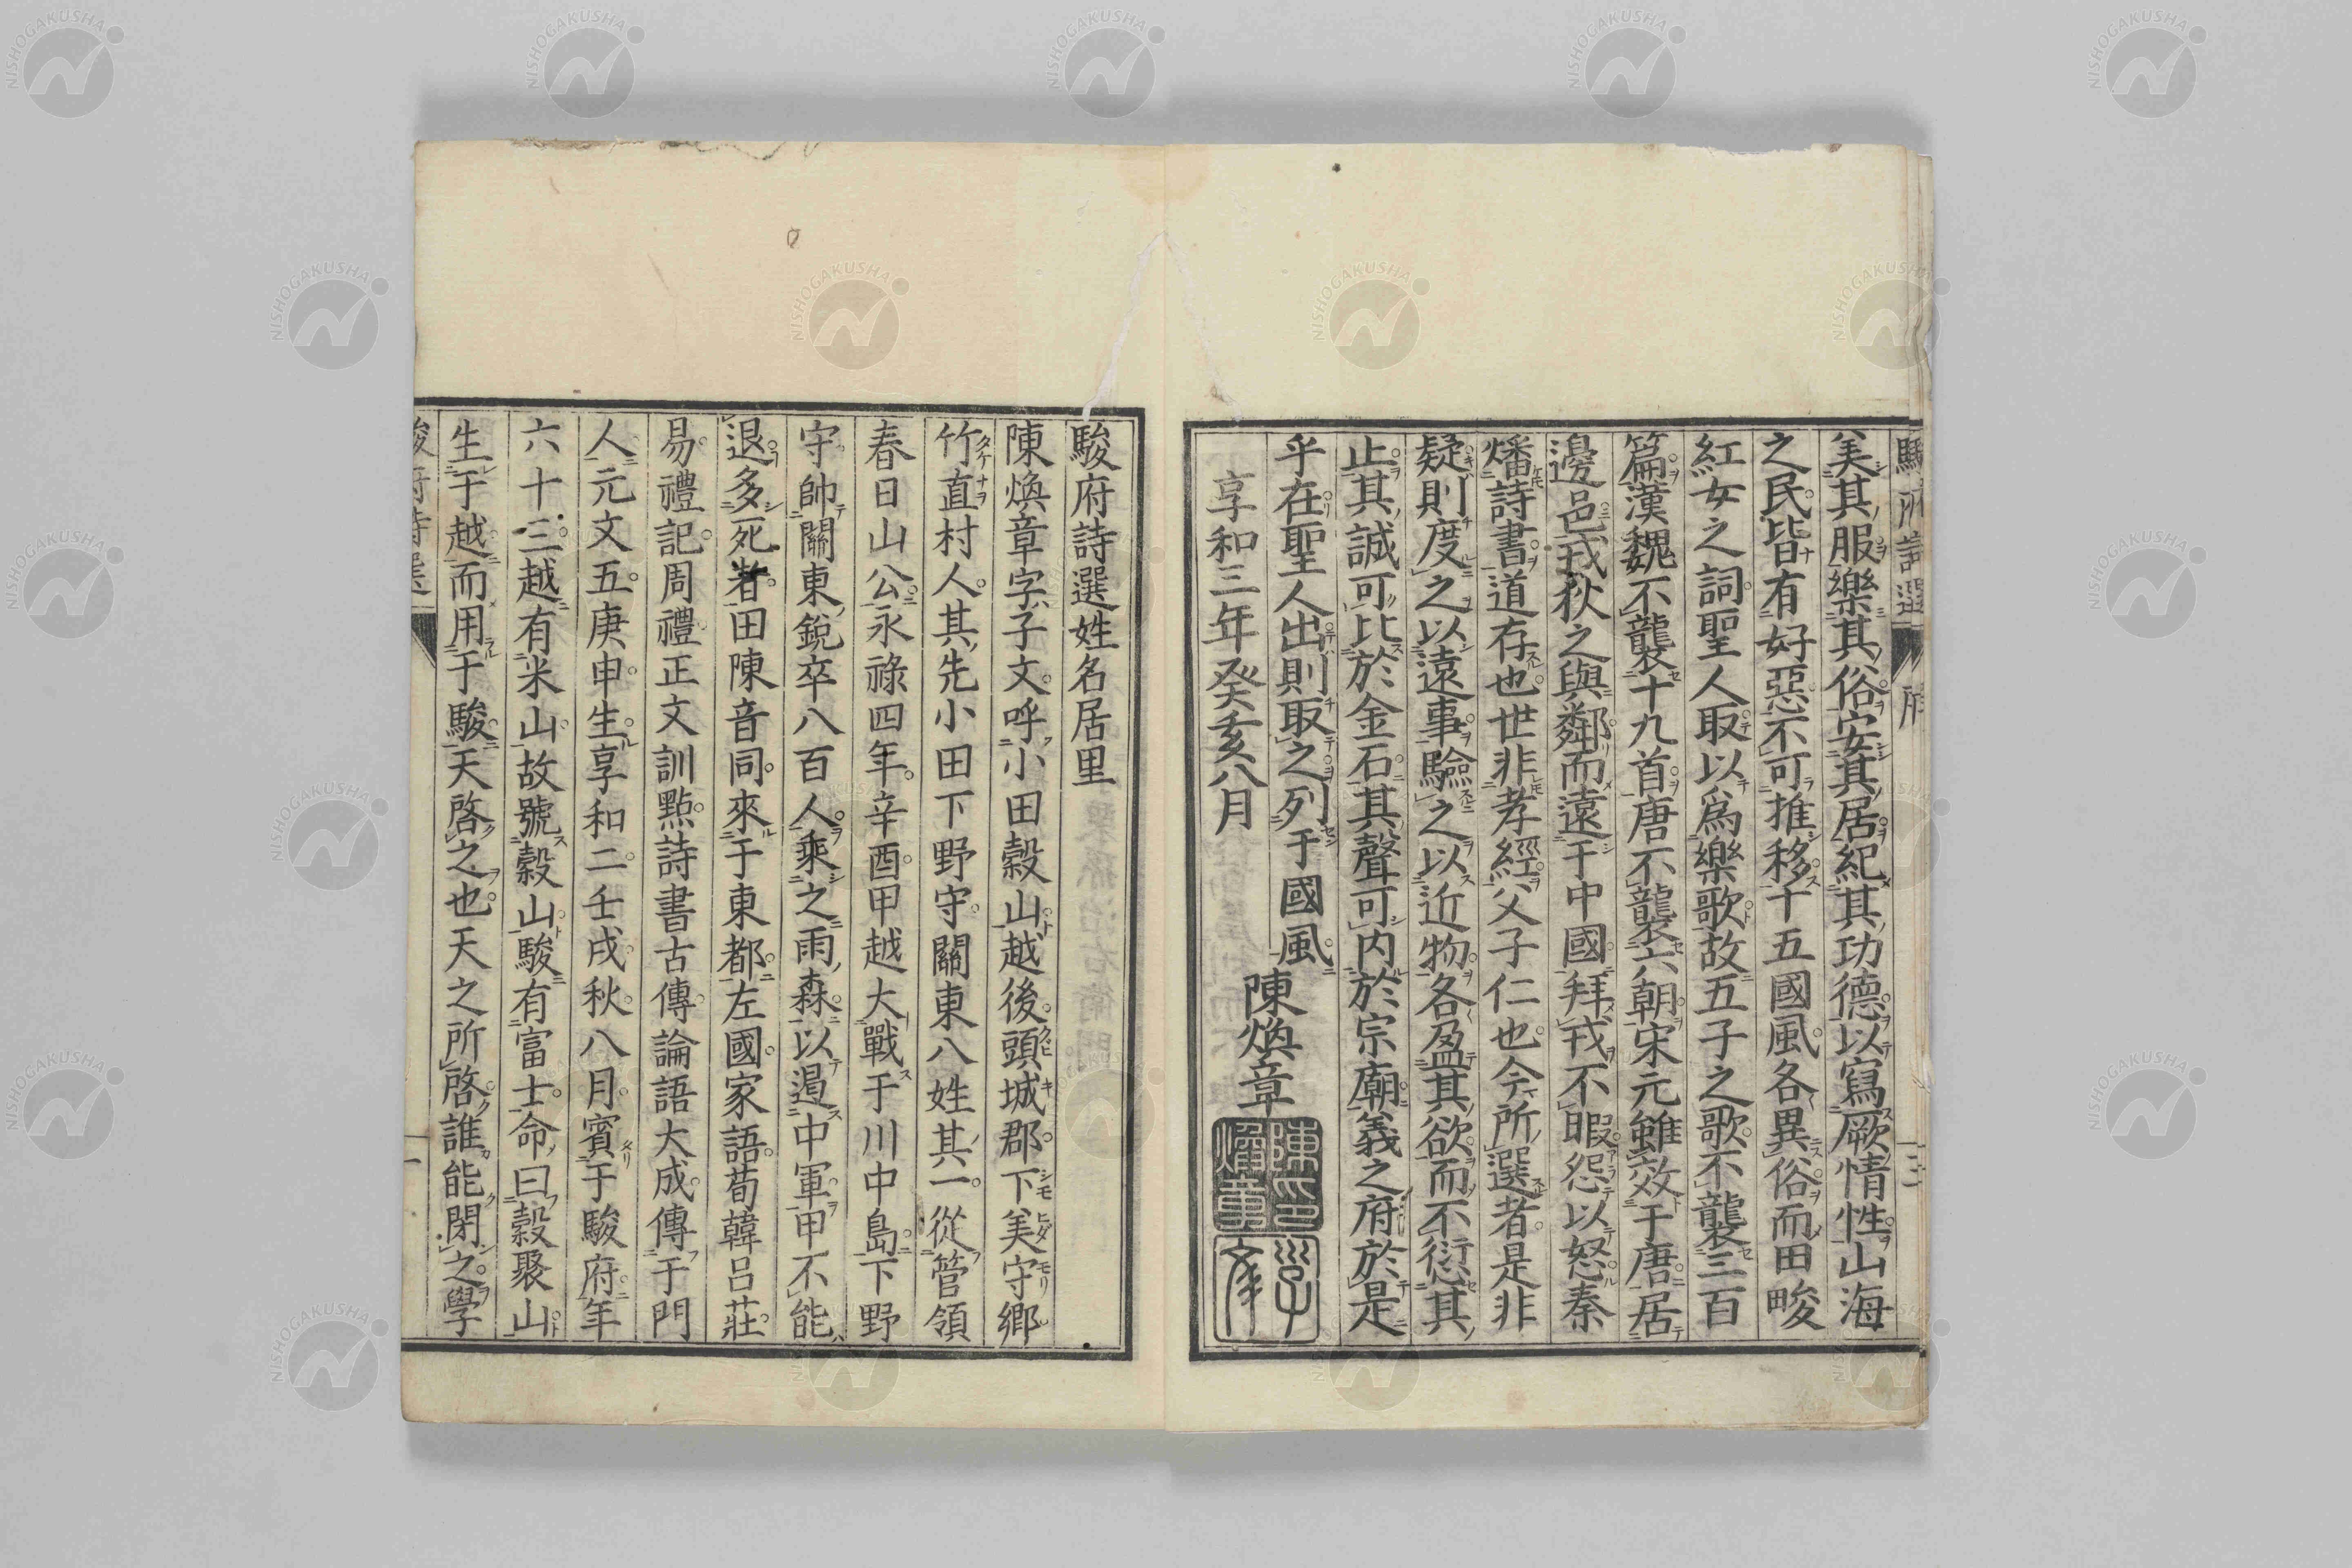 駿府詩選
序
三
美其服樂其俗安其居紀其功德以寫厥情性山海
之民皆有好惡不可推移十五國風各異俗而田畯
紅女之詞聖人取以爲樂歌故五子之歌不襲三百
篇漢魏不襲十九首唐不襲六朝宋元雖效于唐居
邊邑戎狄之與鄰而遠于中國拜戎不暇怨以怒秦
燔詩書道存也世非孝經父子仁也今所選者是非
疑則度之以遠事驗之以近物各盈其欲而不愆其
止其誠可比於金石其聲可内於宗廟義之府於是
乎在聖人出則取之列于國風
享和三年癸亥八月
陳煥章
陳煥章印
子文
駿府詩選姓名居里
陳煥章字子文呼小田穀山越後頸城郡下美守鄉
竹直村人其先小田下野守關東八姓其一從管領
春日山公永祿四年辛酉甲越大戰于川中島下野
守帥關東銳卒八百人乘之雨森以遏中軍甲不能
退多死者田陳音同來于東都左國家語荀韓呂莊
易禮記周禮正文訓點詩書古傳論語大成傳于門
人元文五庚申生享和二壬戌秋八月賓于駿府年
六十三越有米山故號穀山駿有富士命曰穀聚山
生于越而用于駿天啓之也天之所啓誰能閉之學
駿府詩選
一